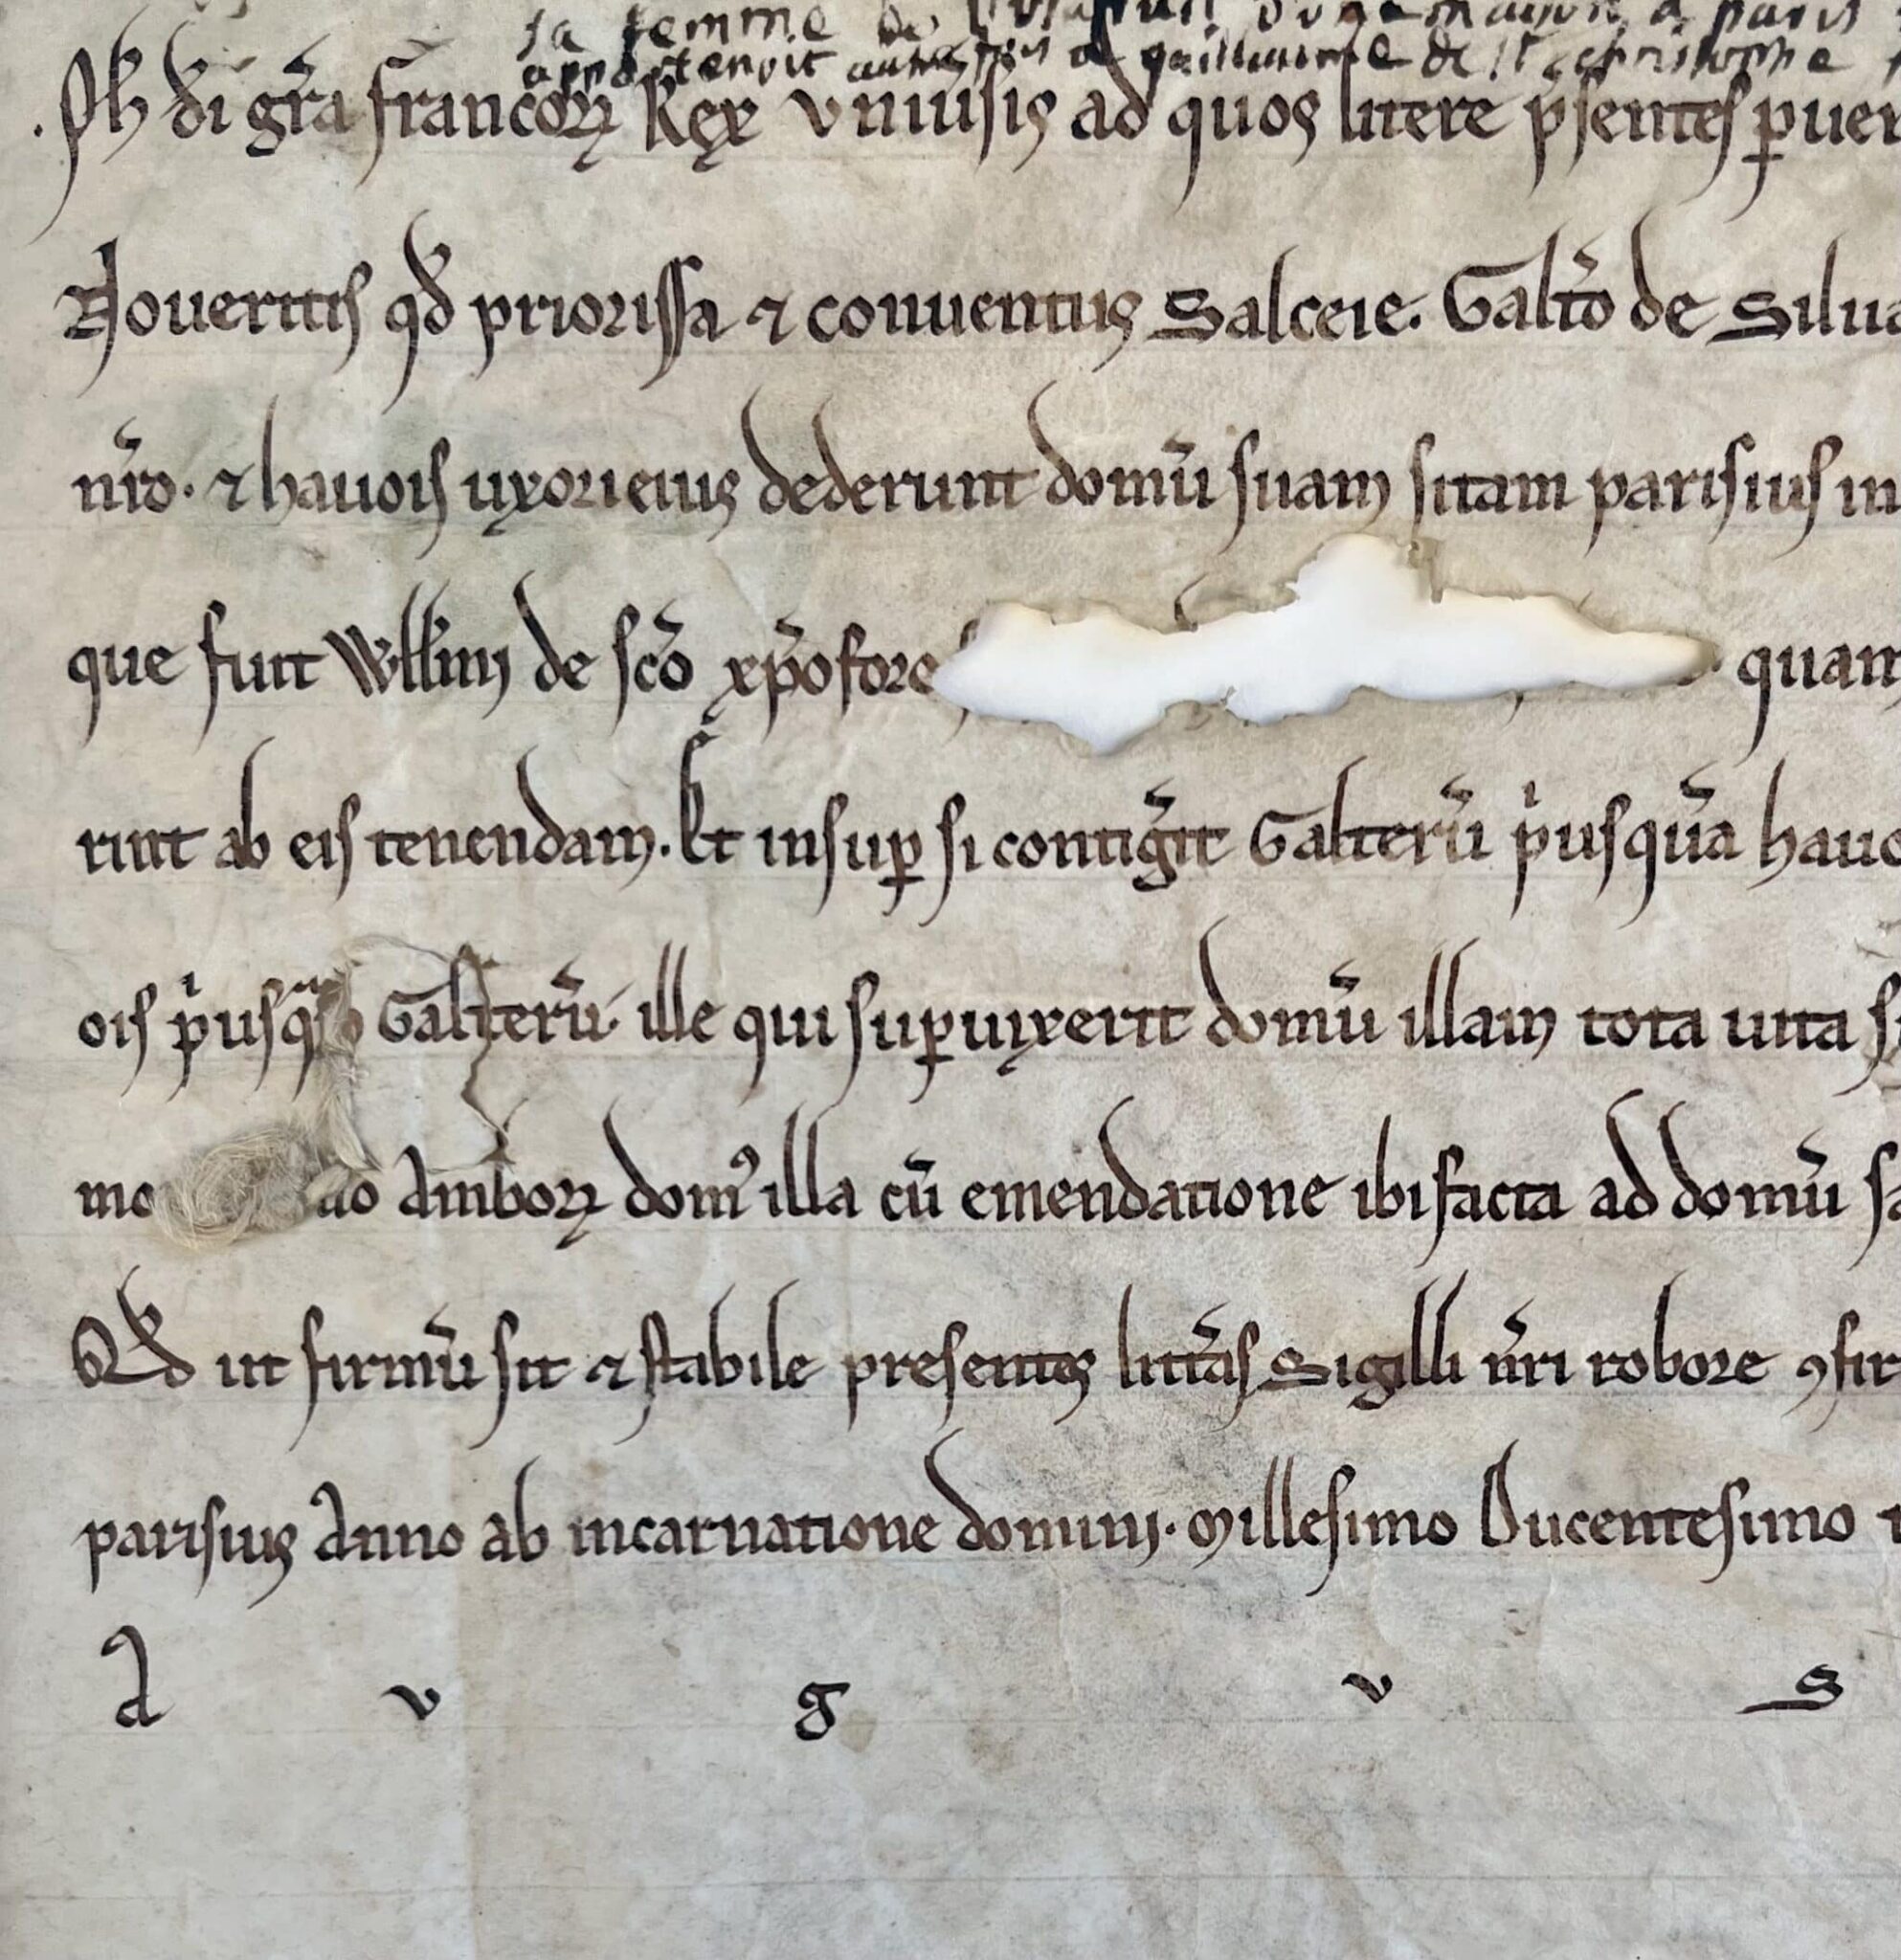 sa femme de d'une maison a paris
appartenoit autrefois a guillaume de st christophe
.Ph di gr̃a francoꝝ Rex vniu̾sis ad quos litere p̾sentes ꝑuer
Noueritis qd̾ priorissa ⁊ conuentus Salceie. Galt̾o de Silua
nr̃o. ⁊ hauois uxori eius dederunt domũ suam sitam parisius in
que fuit Willm̃ de sc̃o xp̃ofore quam
rint ab eis tenendam. Et insuꝑ si contig̾it Galterũ p̾usquã hauo
ois p̾usqᵃ Galterũ ille qui suꝑuixerit domũ illam tota uita
mo amboꝝ domꝰ illa cũ emendatione ibi facta ad domũ sa
Qd̾ ut firmũ sit ⁊ stabile presentes litt̾as Sigilli nr̃i robore ꝯfir
parisius Anno ab incarnatione domini. Millesimo Ducentesimo
A v g v s